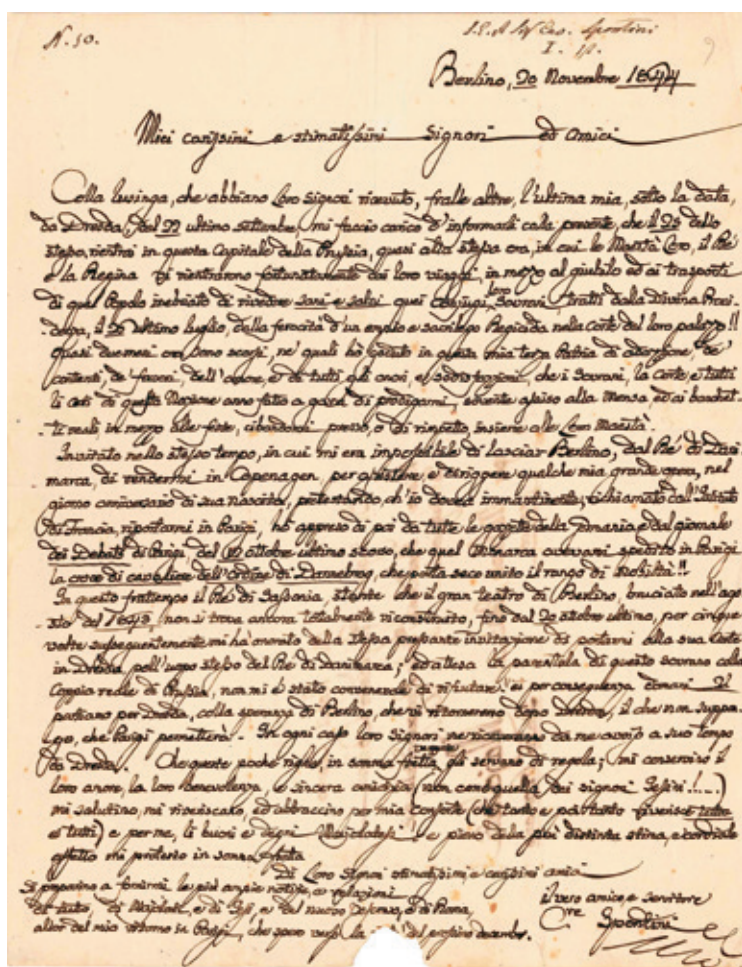 N. 30.
Berlino, 20 Novembre 1844
Miei carissimi e stimatissimi Signori ed Amici
Colla lusinga, che abbiano Loro Signori ricevuto, fralle altre, l'ultima mia, sotto la data,
da Dresda, del 22 ultimo settembre, mi faccio carico d'informarli colla presente, che il 25 dello
stesso, rientrai in questa Capitale della Prussia, quasi alla stessa ora, in cui le Maestà Loro, il Ré
e la Regina vi rientrarono fortunatamente dai loro viaggi, in mezzo al giubilo ed ai trasporti
di quel Popolo inebriato di rivedere sani e salvi quei coniugi loro Sovrani, tratti dalla Divina Provi-
-denza, il 26 ultimo luglio, dalla ferocità d'un empio e sacrilego Regicida nella Corte del loro palazzo!!
Quasi due mesi or sono scorsi, ne' quali hò goduto in questa mia terza Patria di adozzione, de'
contenti, de' favori, dell'amore, e di tutti gli onori, e soddisfazzioni, che i Sovrani, la Corte, e tutti
li Ceti di questa Nazione anno fatto a gara di prodigarmi, sovente assiso alla Mensa, ed ai banchet-
-ti reali in mezzo alle feste, cibandomi presso, o di rimpetto, insieme alle Loro Maestà.
Invitato nello stesso tempo, in cui mi era impossibile di lasciar Berlino, dal Ré di Dani
marca, di rendermi in Copenagen, per assistere, e diriggere qualche mia grande opera, nel
giorno anniversario di sua nascita, protestando, ch'io dovea immantinente, richiamato dall'Istituto
di Francia, riportarmi in Parigi, hò appreso di poi da tutte le gazzette della Germania e dal giornale
dei Debats di Parigi del ottobre ultimo scorso, che quel Monarca aveami spedito in Parigi
la croce di cavagliere dell'Ordine di Dannebrog, che porta seco unito il rango di Nobiltà!!
In questo frattempo il Ré di Sassonia, stante che il gran teatro di Berlino, bruciato nell'ago
sto del 1843, non si trova ancora totalmente ricostruito, fino dal 20 ottobre ultimo, per cinque
volte susseguentemente mi ha onorato della stessa pressante invitazione di portarmi alla sua Corte
in Dresda pell'uopo stesso del Ré di Danimarca; ed attesa la parentela di questo sovrano colla
Coppia reale di Prussia, non mi è stato convenevole di rifiutare; e per conseguenza domani 21
partiamo per Dresda, colla speranza di Berlino, che vi ritorneremo dopo Dresda, il che non suppon-
go, che Parigi permetterà. In ogni caso loro Signori ne riceveranno da me avviso a suo tempo
da Dresda. Che queste poche righe, in somma fretta, gli servano di regola; mi conservino il
loro amore, la lor benevolenza, e sincera amicizia (non quella dei signori Jesini!.....)
mi salutino, mi riveriscano, ed abbraccino per mia Consorte (che tanto e poi tanto riverisce tutte
e tutti) e per me, li buoni e degni Majolatesi: e pieno della più distinta stima, e cordiale
affetto mi protesto in somma fretta
Di Loro Signori stimatissimi, e carissimi amici
Si preparino a fornirmi le più ampie notizie, e relazioni
di tutto, di Majolati, e di Jesi, e del nuovo Vescovo, e di Roma,
allor del mio ritorno in Parigi, che spero verso la del prossimo decembre.
il vero amico, e servitore
Spontini